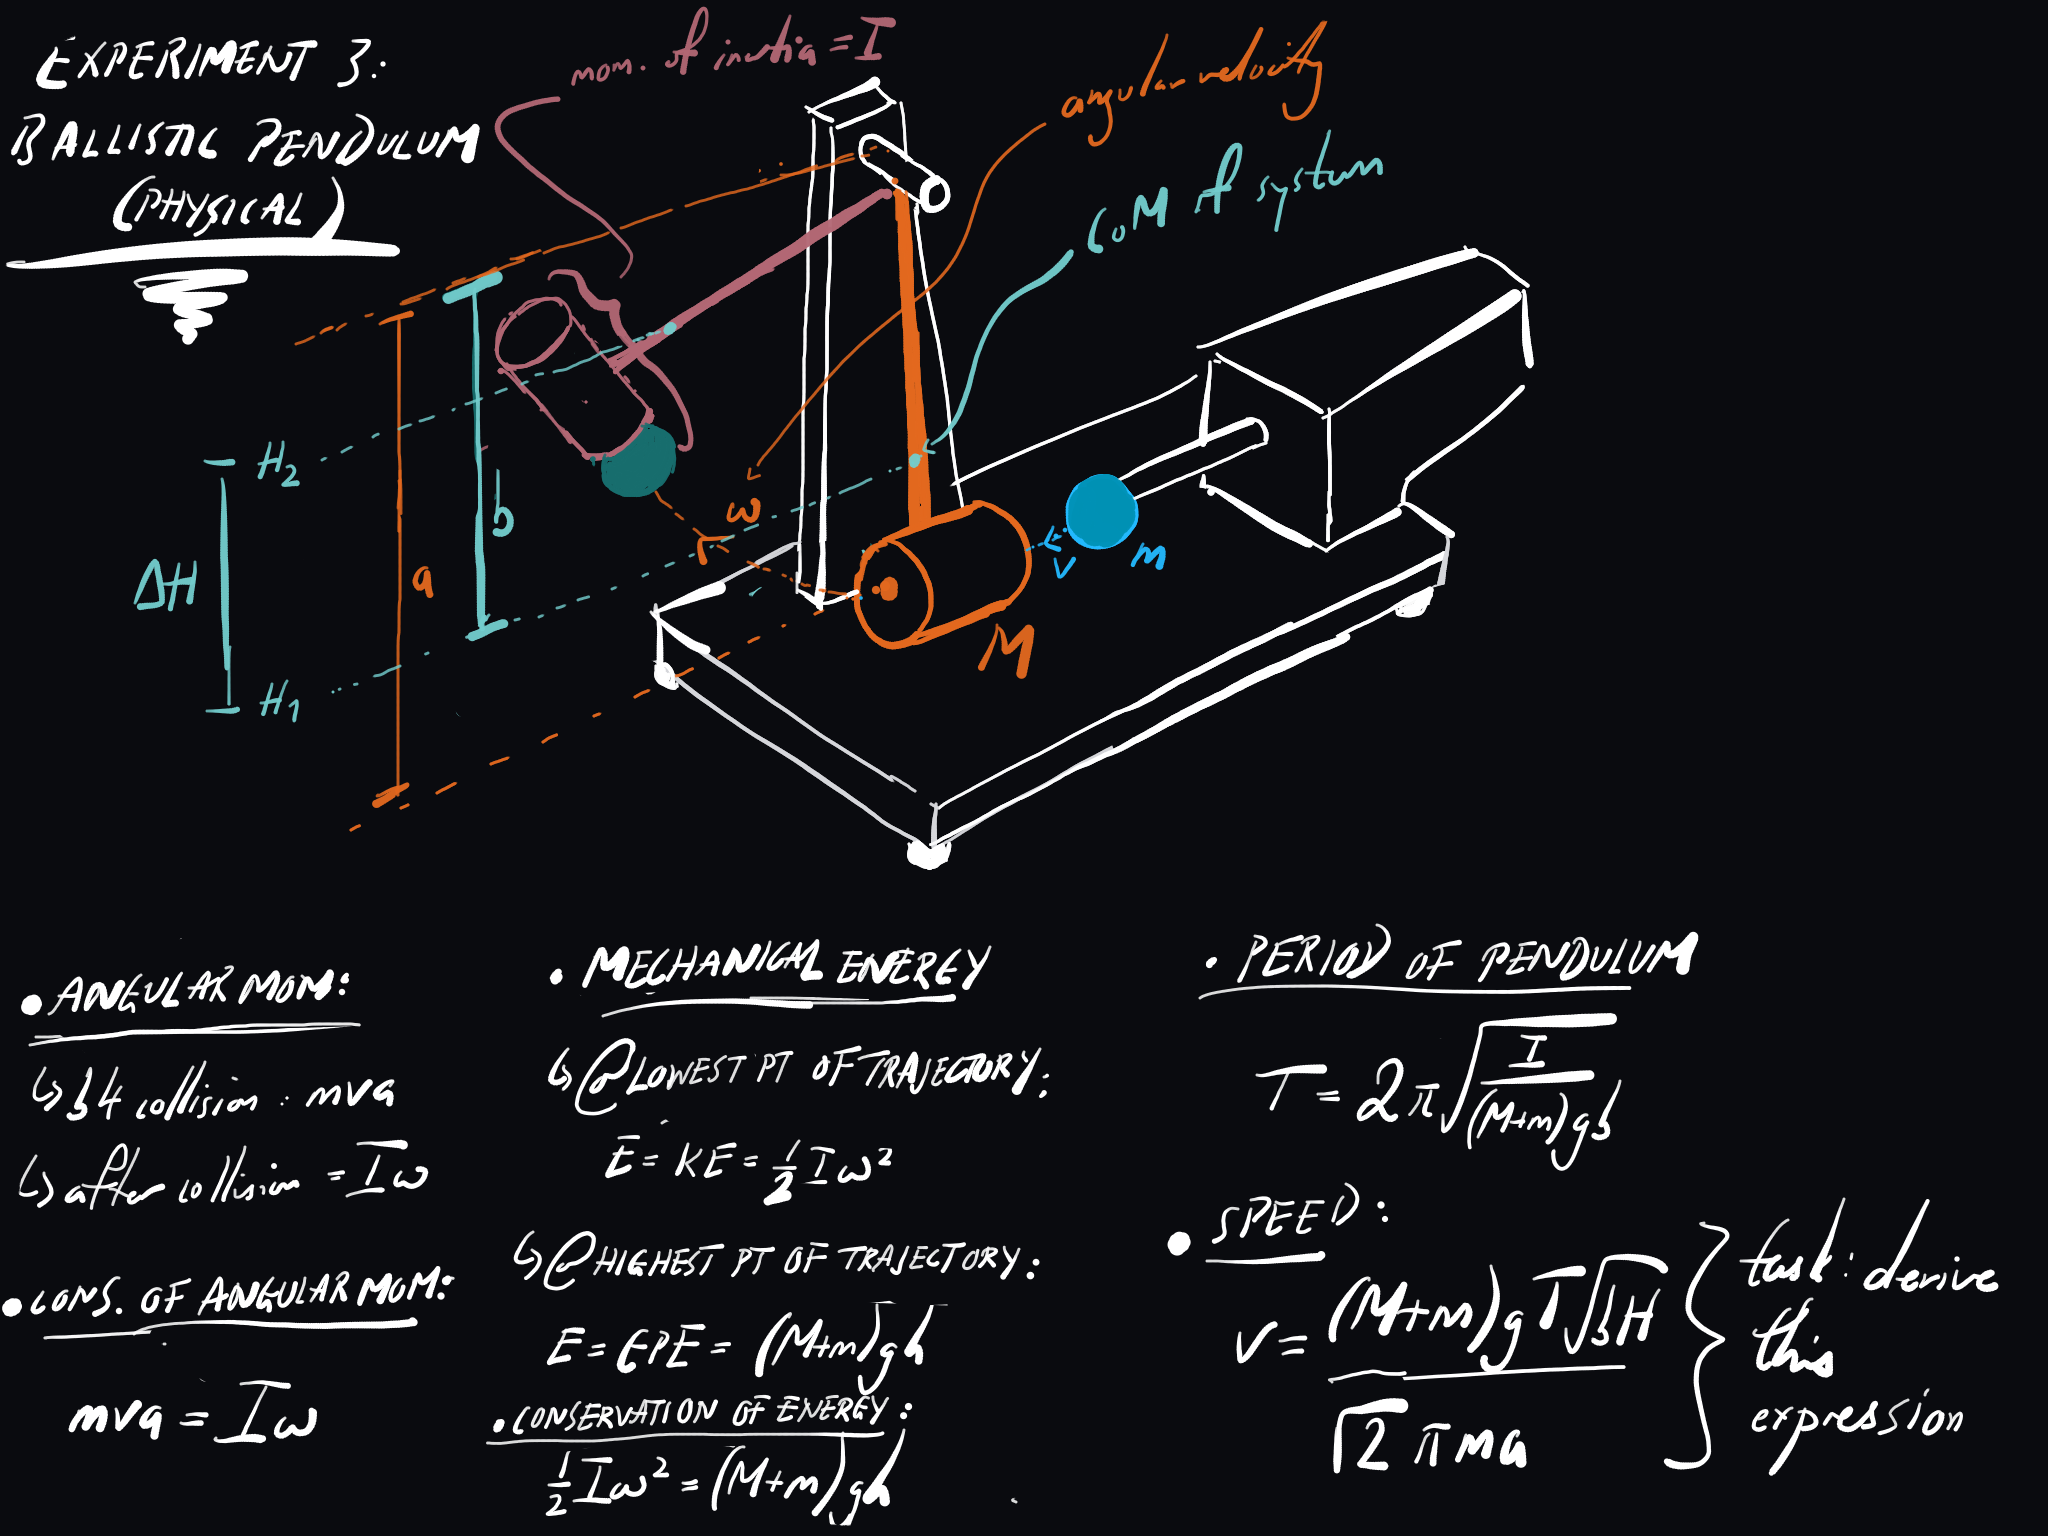 EXPERIMENT 3:
BALLISTIC PENDULUM
(PHYSICAL)
mom. of inertia = I
angular velocity
CoM of system
H₂
ΔH
H₁
a
b
ω
v
m
M
• ANGULAR MOM:
↳ b4 collision : mva
↳ after collision = Iω
• CONS. OF ANGULAR MOM:
mva = Iω
• MECHANICAL ENERGY
↳ @ LOWEST PT OF TRAJECTORY:
E = KE = ½ I ω²
↳ @ HIGHEST PT OF TRAJECTORY:
E = GPE = (M+m)gh
• CONSERVATION OF ENERGY:
½ I ω² = (M+m)gh
• PERIOD OF PENDULUM
T = 2π√(I/(M+m)gb)
• SPEED:
v = (M+m)gT√bH / √2 πma
task: derive
this
expression